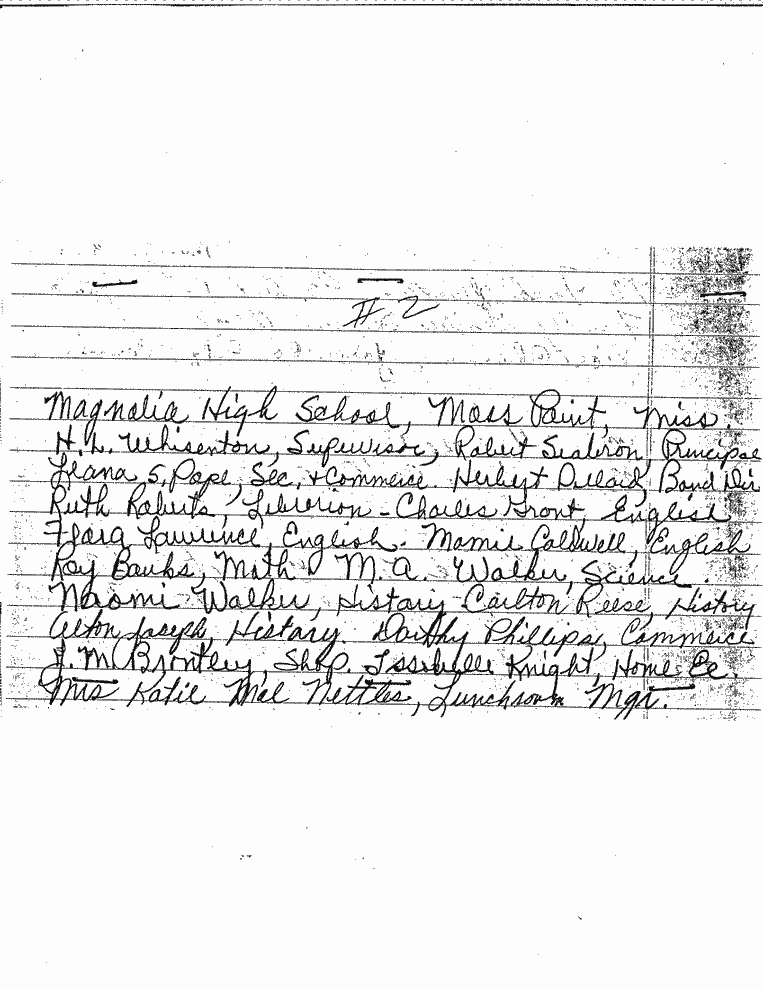 # 2
Magnolia High School, Moss Point, Miss.
H. L. Whisenton, Supervisor, Robert Seabron Principal
Leana S. Pope, Sec. & Commerce. Herbert Dillard, Band Dir
Ruth Roberts, Librarian - Charles Grant, English
Flora Lawrence, English. Mamie Caldwell, English
Roy Banks, Math M. A. Walker, Science.
Naomi Walker, History Carlton Reese, History
Alton Joseph, History. Dorthy Phillips, Commerce
J. M. Brantley, Shop. Issabelle Knight, Home Ec.
Mrs Katie Mae Nettles, Lunchroom Mgr.